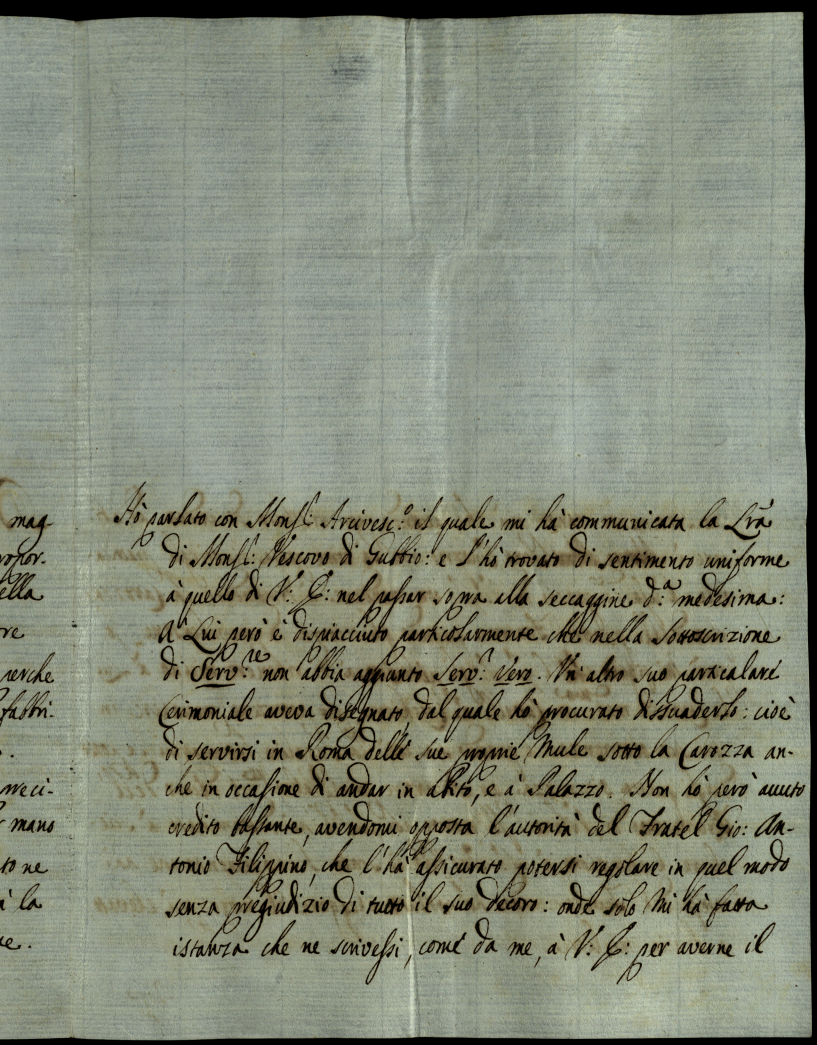 mag-
ropor-
ella
re
perche
fabbri-
.
preci-
r mano
to ne
à la
ue.
Hò parlato con Monsr: Arcivesc:º il quale mi hà communicata la Lrã
di Monsr: Vescovo di Gubbio: e l'hò trovato di sentimento uniforme
à quello di V: E: nel passar sopra alla seccaggine d:ª medesima:
A Lui però è dispiacciuto particolarmente che nella Sottoscrizione
di Serv:re non abbia aggiunto Serv:r Vero. Un altro suo particalare
Cerimoniale aveva disegnato, dal quale hò procurato dissuaderlo: cioè
di servirsi in Roma delle sue proprie Mule sotto la Carozza an-
che in occasione di andar in abito, e à Palazzo. Non hò però avuto
credito bastante, avendomi opposta l'autorità del Fratel Gio: An-
tonio Filippino, che l'hà assicurato potersi regolare in quel modo
senza pregiudizio di tutto il suo decoro: onde solo mi hà fatta
istanza che ne scrivessi, come da me, à V: E: per averne il